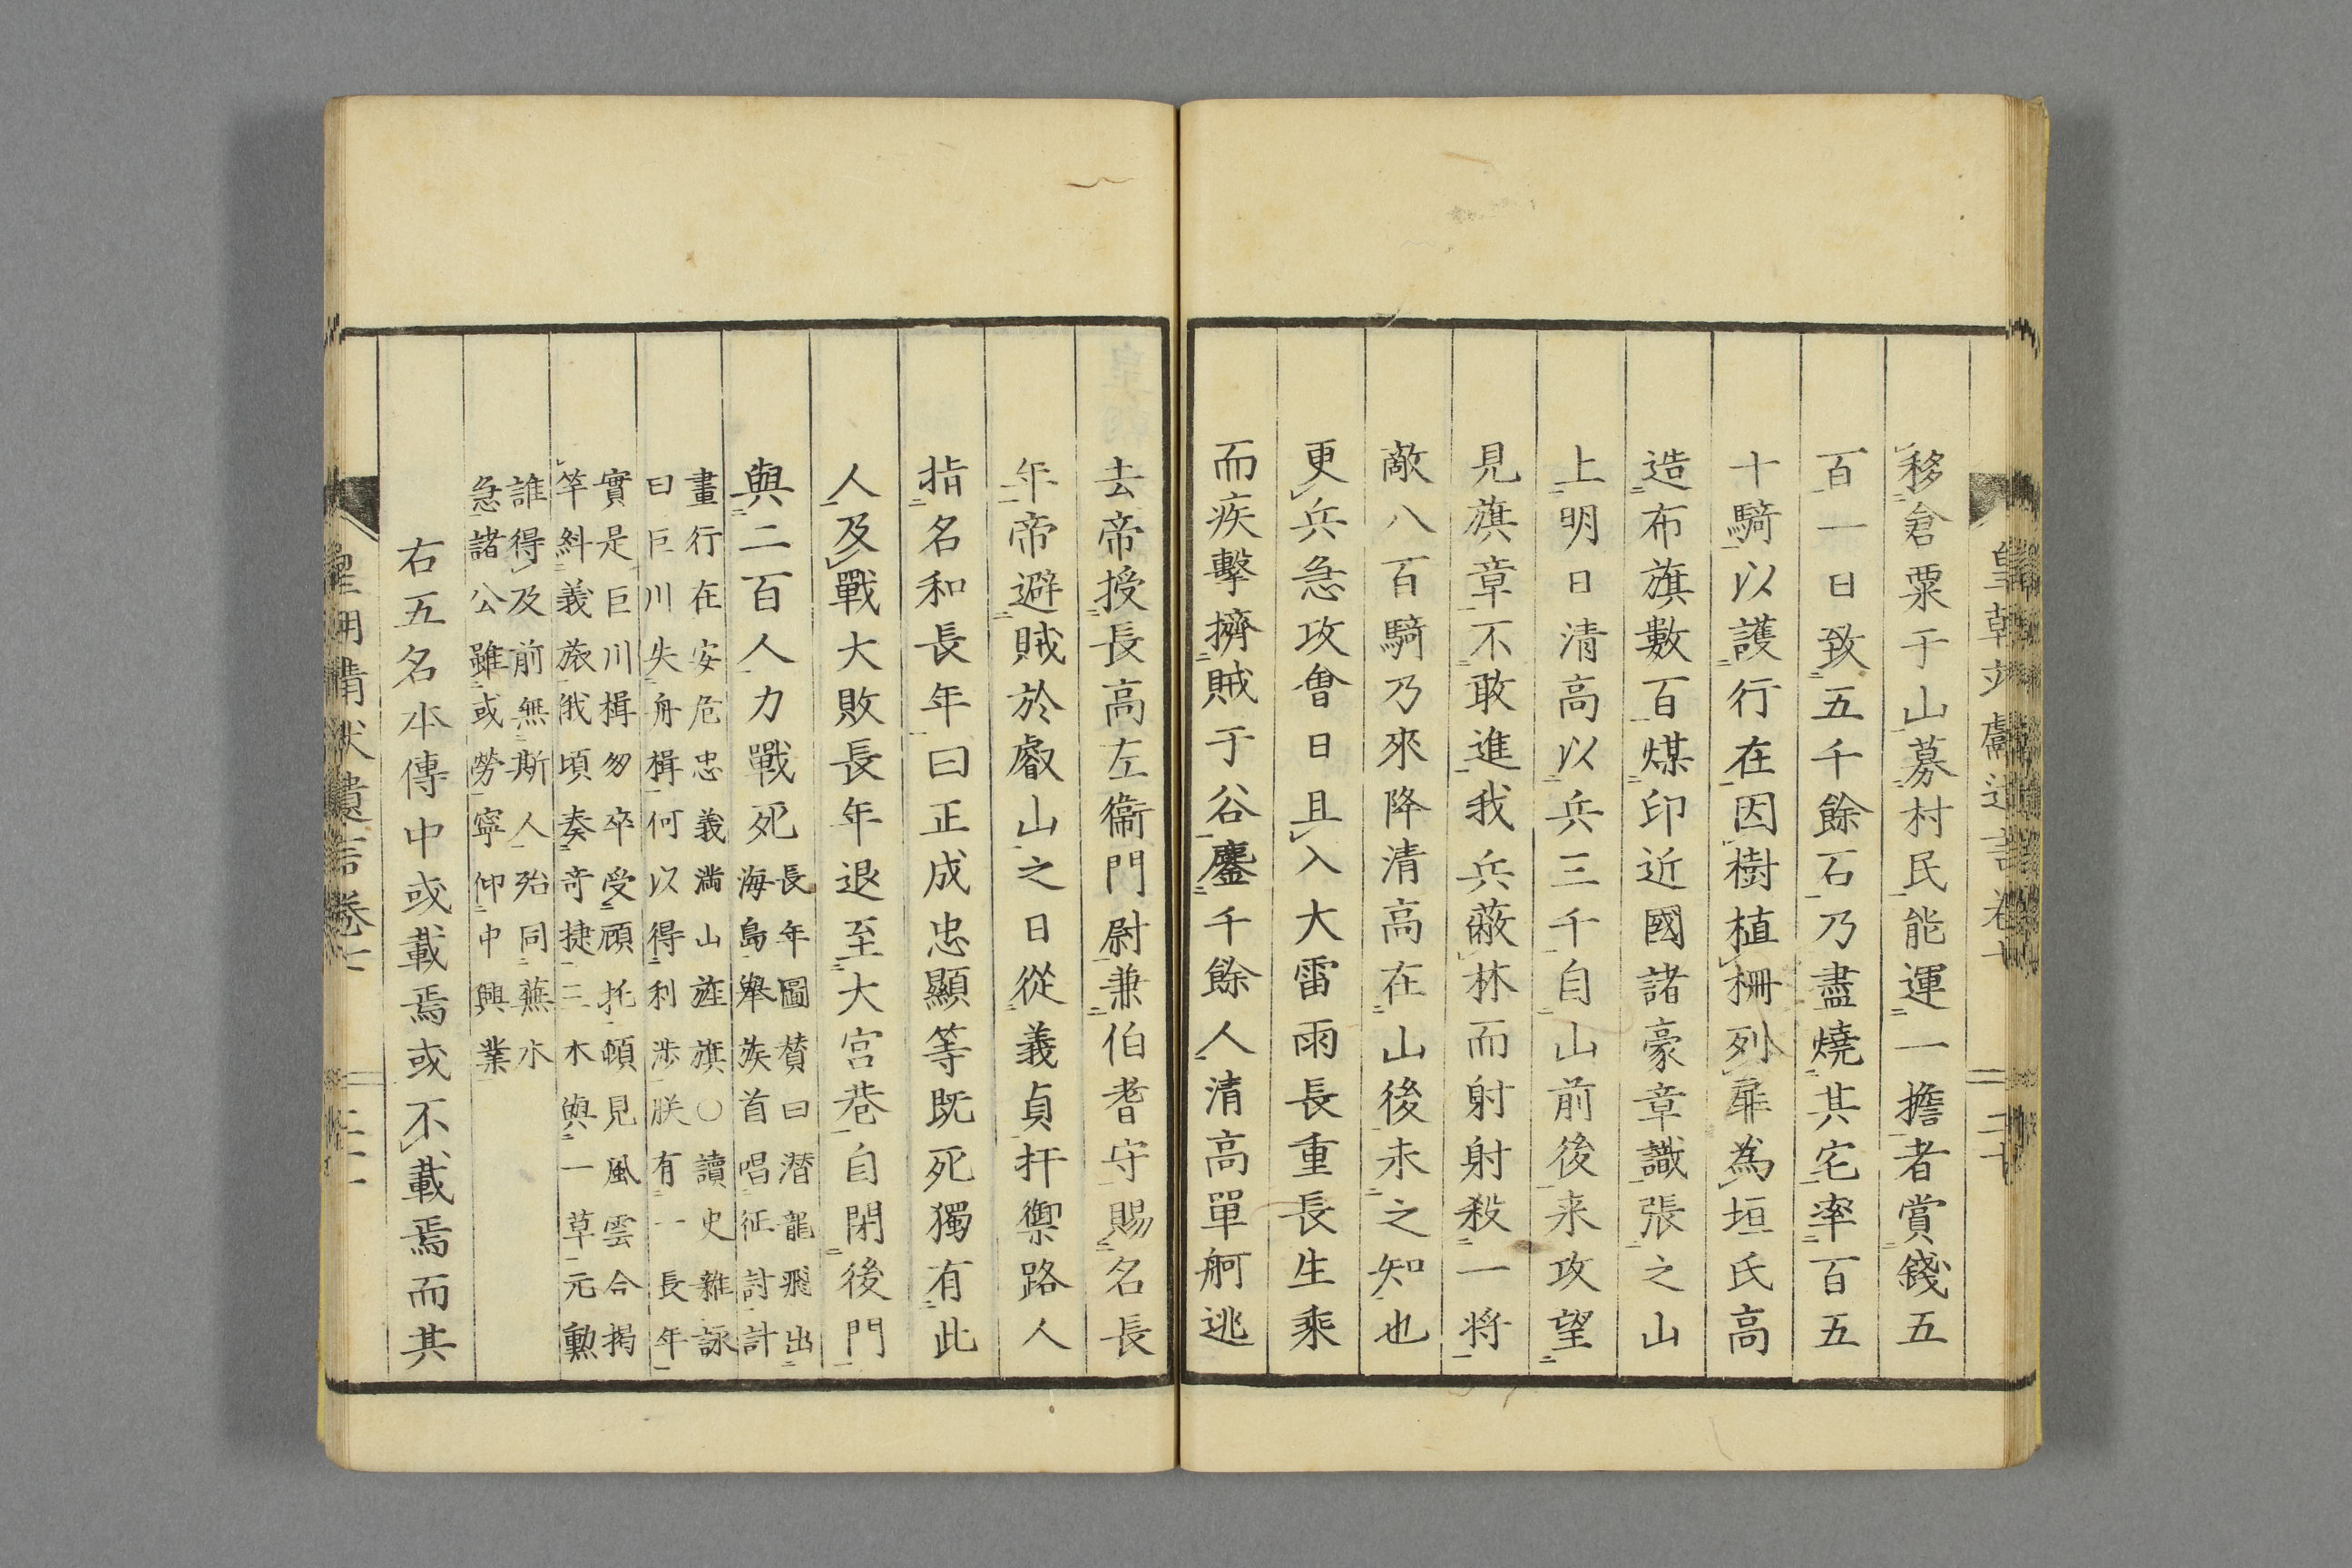 移倉粟于山募村民能運一擔者賞錢五
百一日致五千餘石乃盡燒其宅率百五
十騎以護行在因樹植柵列扉為垣氏高
造布旗數百煤印近國諸豪章識張之山
上明日清高以兵三千自山前後来攻望
見旗章不敢進我兵蔽林而射射殺一将
敵八百騎乃來降清高在山後未之知也
更兵急攻會日且入大雷雨長重長生乘
而疾擊擠賊于谷鏖千餘人清高單舸逃
去帝授長高左衞門尉兼伯耆守賜名長
年帝避賊於叡山之日從義貞扞禦路人
指名和長年曰正成忠顯等既死獨有此
人及戰大敗長年退至大宮巷自閉後門
與二百人力戰死
長年圖賛曰潜龍飛出
海島舉族首唱征討計
畫行在安危忠義満山旌旗〇讀史雜詠
曰巨川失舟楫何以得利渉朕有一長年
實是巨川楫匆卒受顧托頓見風雲合揭
竿糾義旅俄頃奏奇捷三木與一草元勳
誰得及前無斯人殆同蕪水
急諸公雖或勞寧仰中興業
右五名本傳中或載焉或不載焉而其